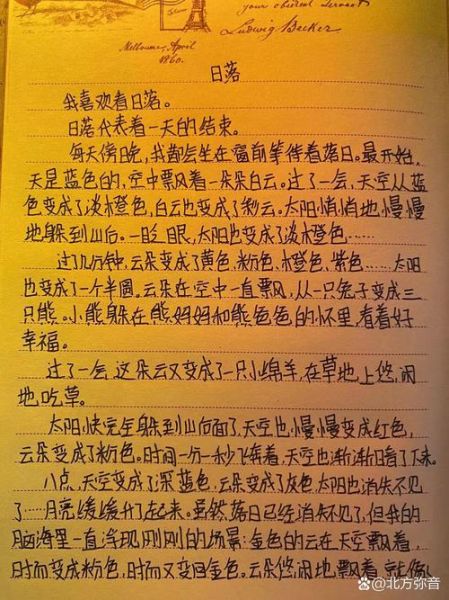 your obedient servant
Ludwig Becker
Melbourne, April
1860.
日落
我喜欢看日落。
日落代表着一天的结束。
每天傍晚,我都会坐在窗前等待着落日。最开始,
天是蓝色的,空中飘风着一朵朵白云。过了一会,天空从蓝
色变成了淡橙色,白云也变成了彩云。太阳悄悄地,慢慢
地躲到山后。一眨眼,太阳也变成了淡橙色……
过了几分钟,云朵变成了黄色、粉色、橙色、紫色……太阳
也变成了一个半圆。云朵在空中一直飘风,从一只兔子变成三
只熊。小熊躲在熊妈妈和熊爸爸的怀里,看着好
幸福。
过了一会,这朵云又变成了一只小绵羊,在草地上悠闲
地吃草。
太阳快完全躲到山后面了,天空也慢慢变成红色,
云朵变成了粉色。时间一分一秒飞奔着,天空也渐渐暗了下来。
八点,天空变成了深蓝色,云朵变成了灰色,太阳也消失不见
了……月亮缓缓升了起来。虽然落日已经消失不见了,但我的
脑海里一直浮现刚刚的场景:金色的云在天空飘着,
时而变成粉色,时而又变回金色。云朵悠闲地飘着,就像
@北方弥音